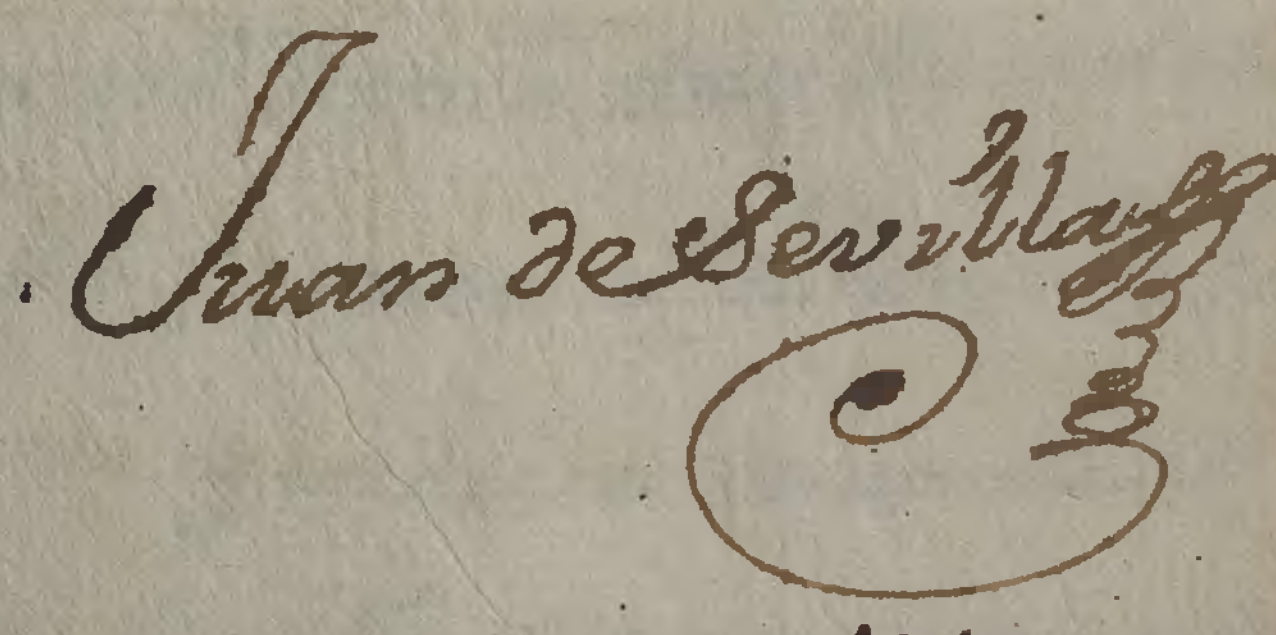 Juan de Sevilla